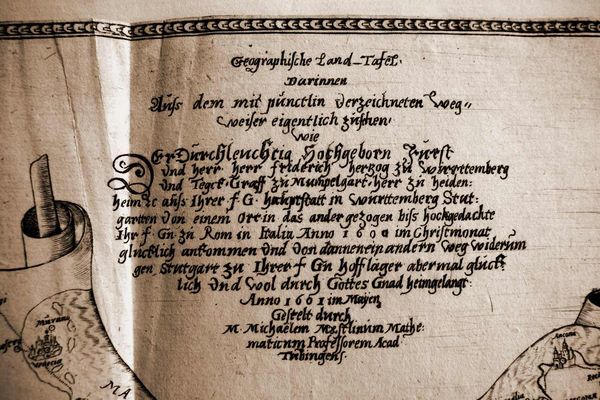 Geographische Land-Tafel.
Darinnen
Auss dem mit pünctlin verzeichneten weg=
weiser eigentlich zusehen.
wie
Der Durchleuchtig Hochgeborn Fürst
Und herr herr friderich herzog zu Wurtemberg
Und Teck. Graff zu Mumpelgart. herr zu heiden:
heim &c auss Ihrer f G. hauptstatt in wurttemberg Stut:
gartten Von einem Ort in das ander gezogen biss hochgedachte
Ihr f Gn zu Rom in Italia Anno 1600 im Christmonat
glucklich ankommen Und von dannen ein andern weg widerum
gen Stutgart zu Ihrer f Gn hofflager abermal gluck
lich Und wol durch Gottes Gnad heimgelangt.
Anno 1661 im Mayen
Gestelt durch
M. Michaelem Mestlinum Mathe:
maticum Professorem Acad
Tubingens.
Murano
Venecia
MA
Ancona